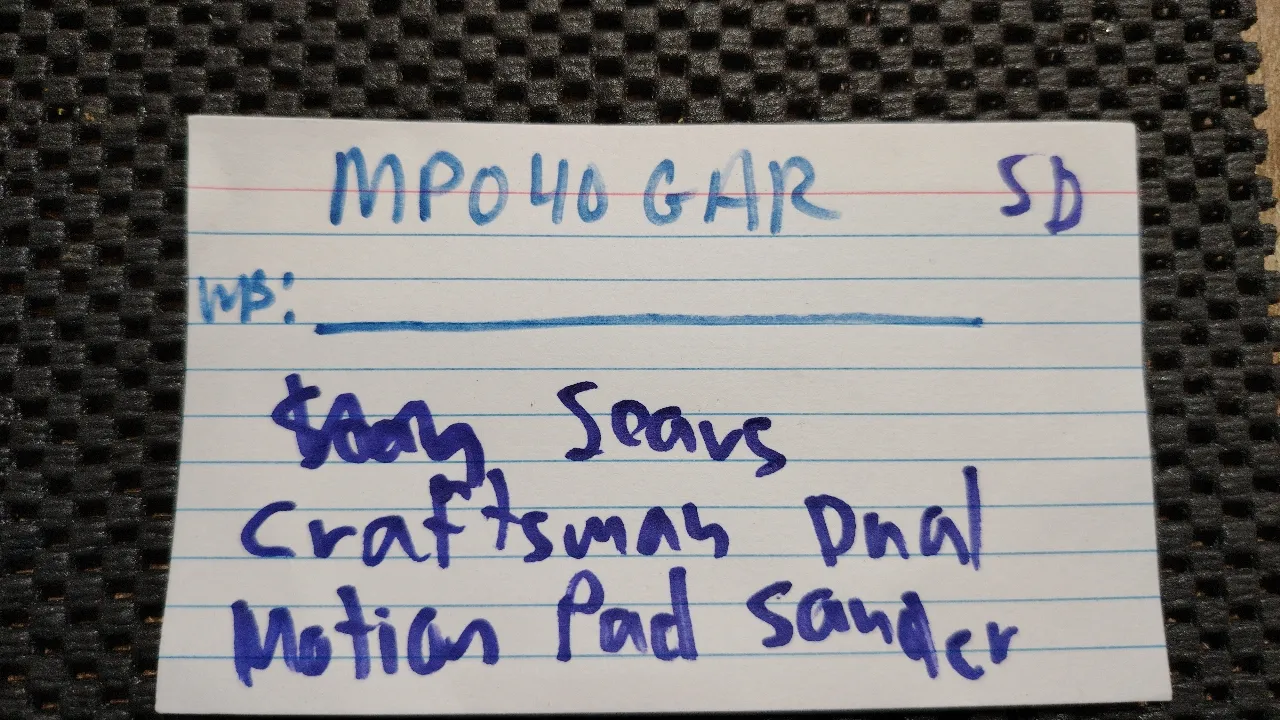 MP040 GAR SD
WB:
Sears
Craftsman Dual
Motion Pad Sander